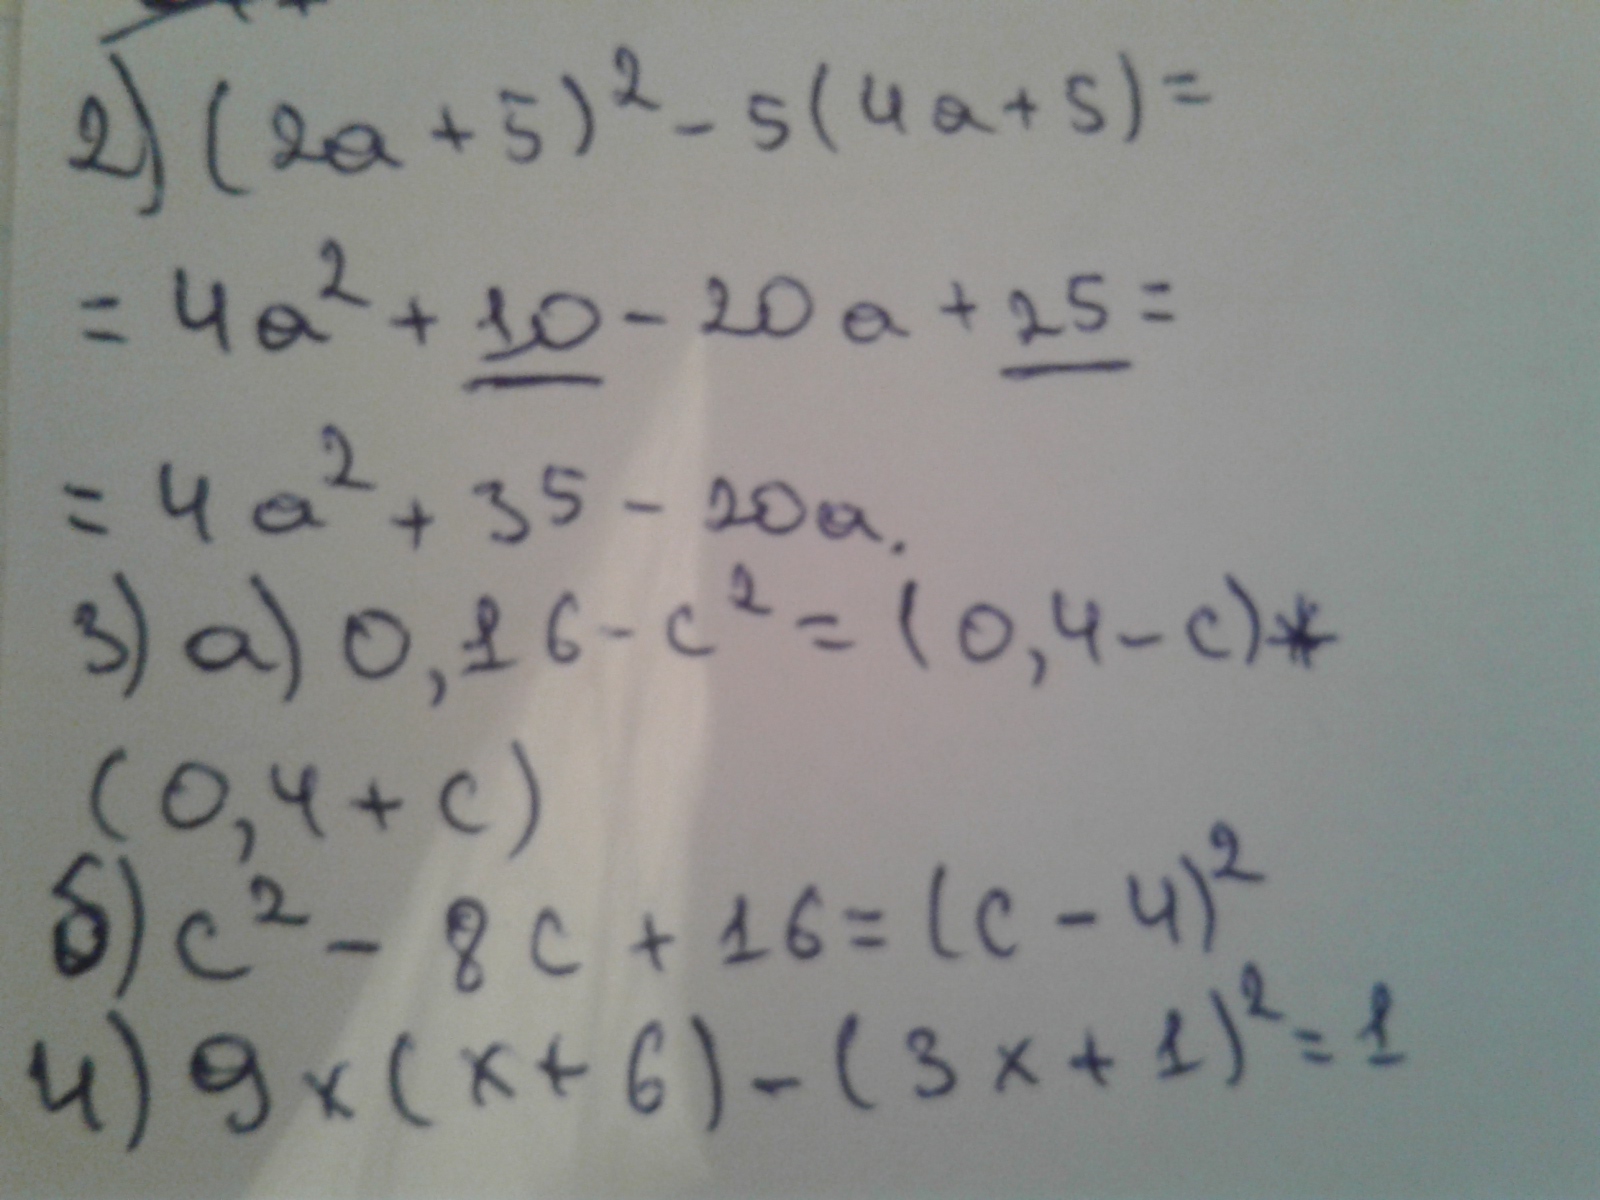 2) (2a + 5)² - 5(4a + 5) =
= 4a² + 10 - 20a + 25 =
= 4a² + 35 - 20a.
3) а) 0,16 - c² = (0,4 - c)*
(0,4 + c)
б) c² - 8c + 16 = (c - 4)²
4) 9x(x + 6) - (3x + 1)² = 1